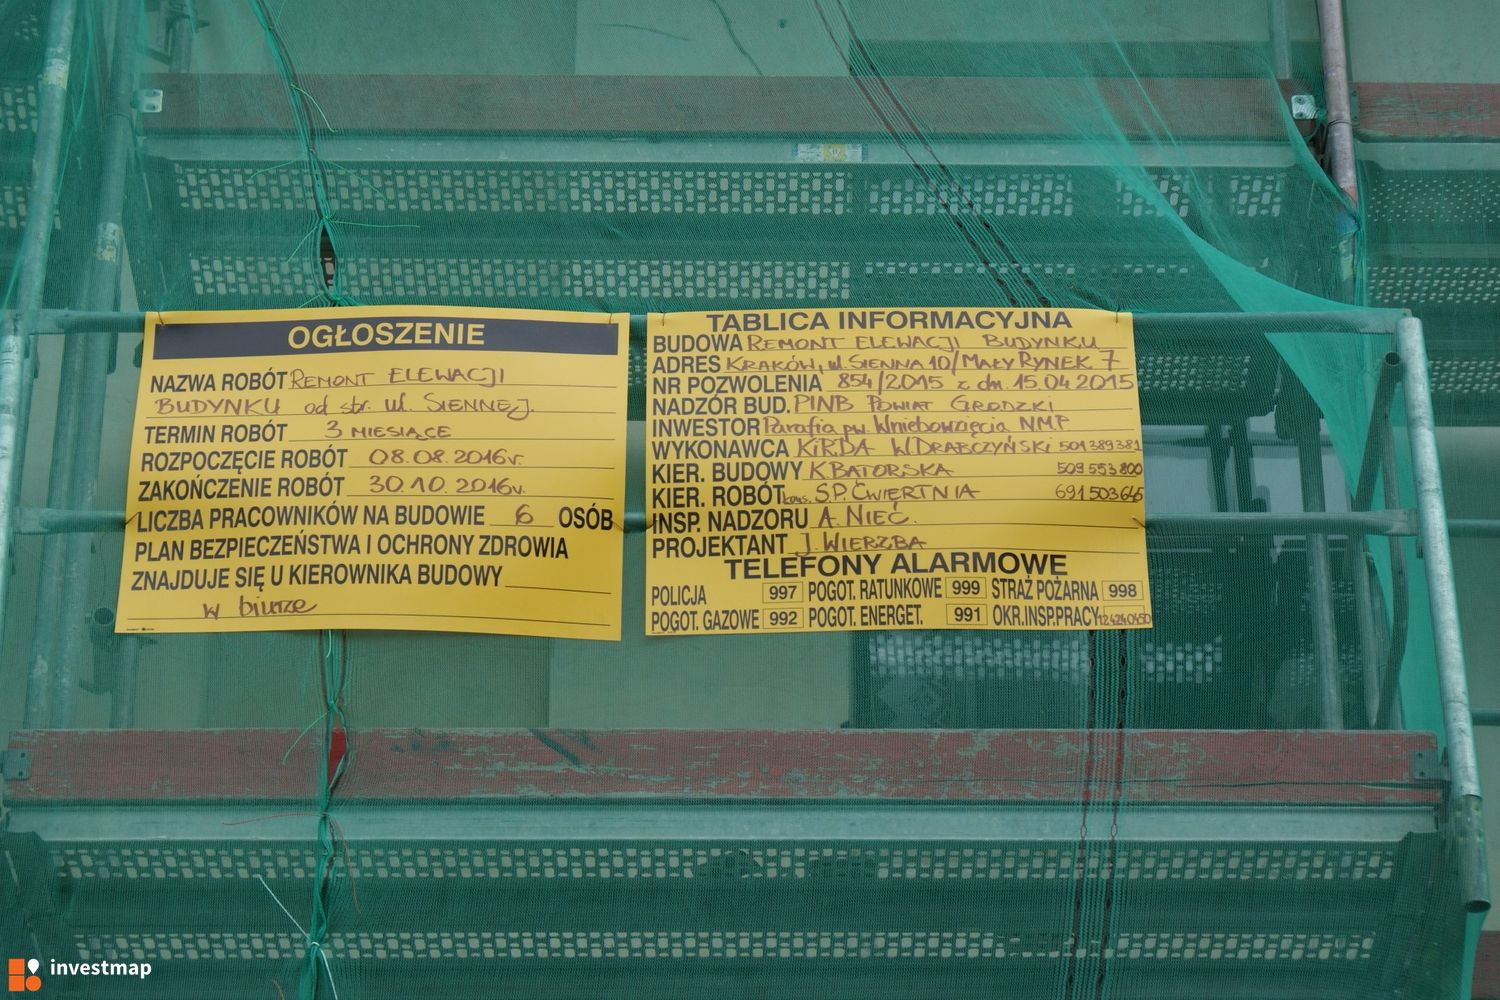 OGŁOSZENIE
NAZWA ROBÓT REMONT ELEWACJI
BUDYNKU od str. ul. SIENNEJ.
TERMIN ROBÓT 3 MIESIĄCE
ROZPOCZĘCIE ROBÓT 08.08.2016r.
ZAKOŃCZENIE ROBÓT 30.10.2016r.
LICZBA PRACOWNIKÓW NA BUDOWIE 6 OSÓB
PLAN BEZPIECZEŃSTWA I OCHRONY ZDROWIA
ZNAJDUJE SIĘ U KIEROWNIKA BUDOWY
w biurze
TABLICA INFORMACYJNA
BUDOWA REMONT ELEWACJI BUDYNKU
ADRES KRAKÓW, ul. SIENNA 10/MAŁY RYNEK 7
NR POZWOLENIA 854/2015 z dn. 15.04.2015
NADZÓR BUD. PINB POWIAT GRODZKI
INWESTOR Parafia pw. Wniebowzięcia NMP
WYKONAWCA KIRDA W.DRABCZYŃSKI 501389381
KIER. BUDOWY K.BATORSKA 509 553 800
KIER. ROBÓT kons. S.P. ĆWIERTNIA 691 503 645
INSP. NADZORU A. NIEĆ.
PROJEKTANT J. WIERZBA
TELEFONY ALARMOWE
POLICJA 997 POGOT. RATUNKOWE 999 STRAŻ POŻARNA 998
POGOT. GAZOWE 992 POGOT. ENERGET. 991 OKR.INSP.PRACY 124240450
investmap